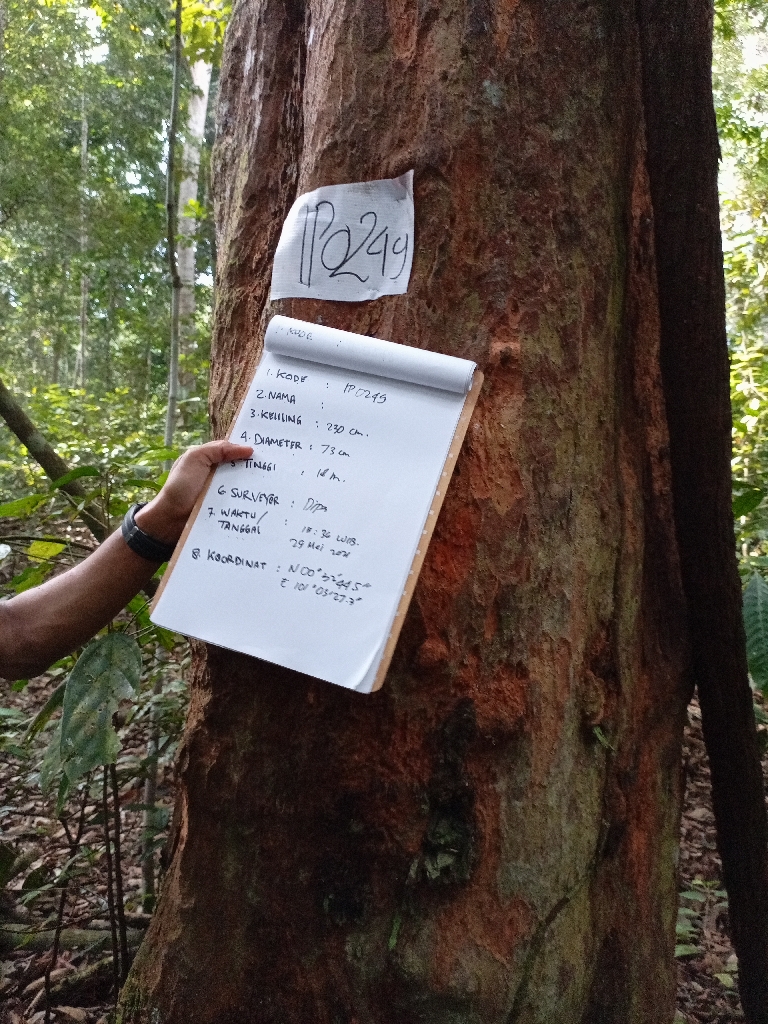 IP0249
KODE :
1. KODE : IP0249
2. NAMA :
3. KELILING : 230 cm.
4. DIAMETER : 73 cm
5. TINGGI : m.
6. SURVEYOR : Dipa
7. WAKTU/ : WIB.
TANGGAL 29 Mei 2021
8. KOORDINAT : N 00°32'44.5"
E 101°03'27.3"